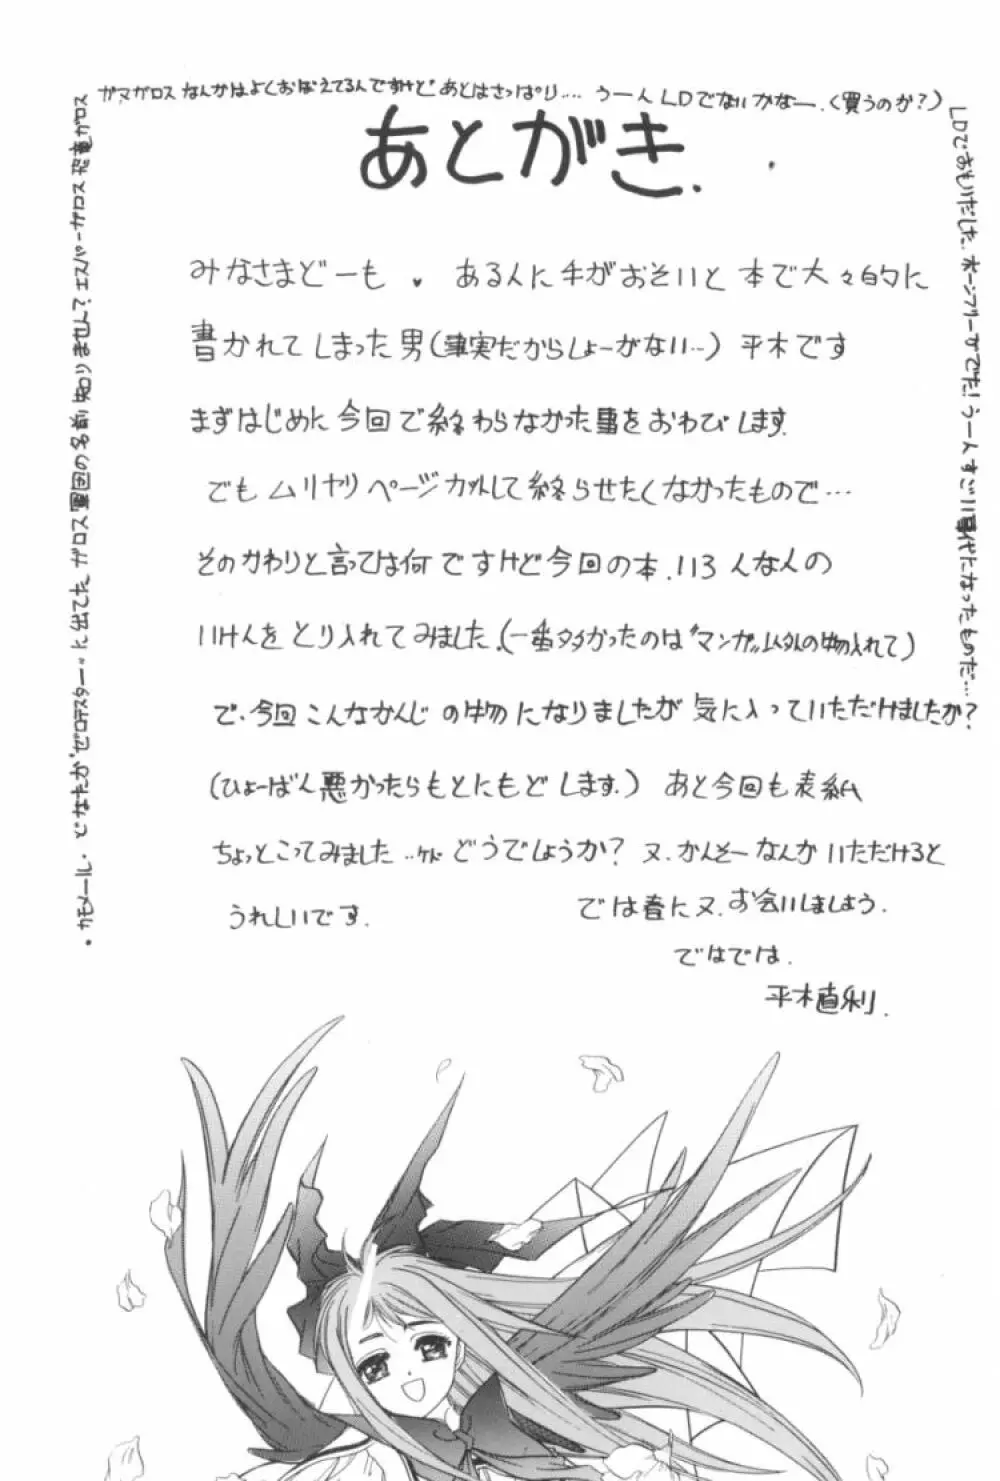 ガマガロスなんかはよくおぼえてるんですけど あとはさっぱり…. うーん LDでないかなー.(買うのか?)
あとがき.
みなさまどーも ♥ ある人に手がおそいと 本で大々的に
書かれてしまった男(事実だからしょーがない…) 平木です
まずはじめに今回で終わらなかった事をおわびします.
でもムリヤリページカットして終らせたくなかったもので…
そのかわりと言っては何ですけど今回の本.いろんな人の
いけんをとり入れてみました.(一番多かったのは〝マンガ〟以外の物入れて)
で.今回こんなかんじの物になりましたが気に入っていただけましたか?
(ひょーばん悪かったらもとにもどします.) あと今回も表紙
ちょっとこってみました…ケド どうでしょうか? 又.かんそーなんかいただけると
うれしいです. では春に又.お会いしましょう.
ではでは.
平木直利.
LDでおもいだした.ボーンフリーがでた!うーんすごい事代になったものだ…
・カモメール. どなたか〝ゼロテスター〟に出てた ガロス軍団の名前知りません?エスパーガロス 恐竜ガロス